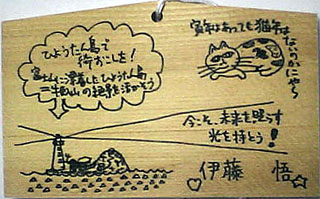 ひょうたん島で
街おこしを!
富士山に漂着したひょうたん島
の経験を活かそう
寅年はあっても猫年は
ないのかにゃ〜
今こそ、未来を照らす
光を持とう!
伊藤 悟